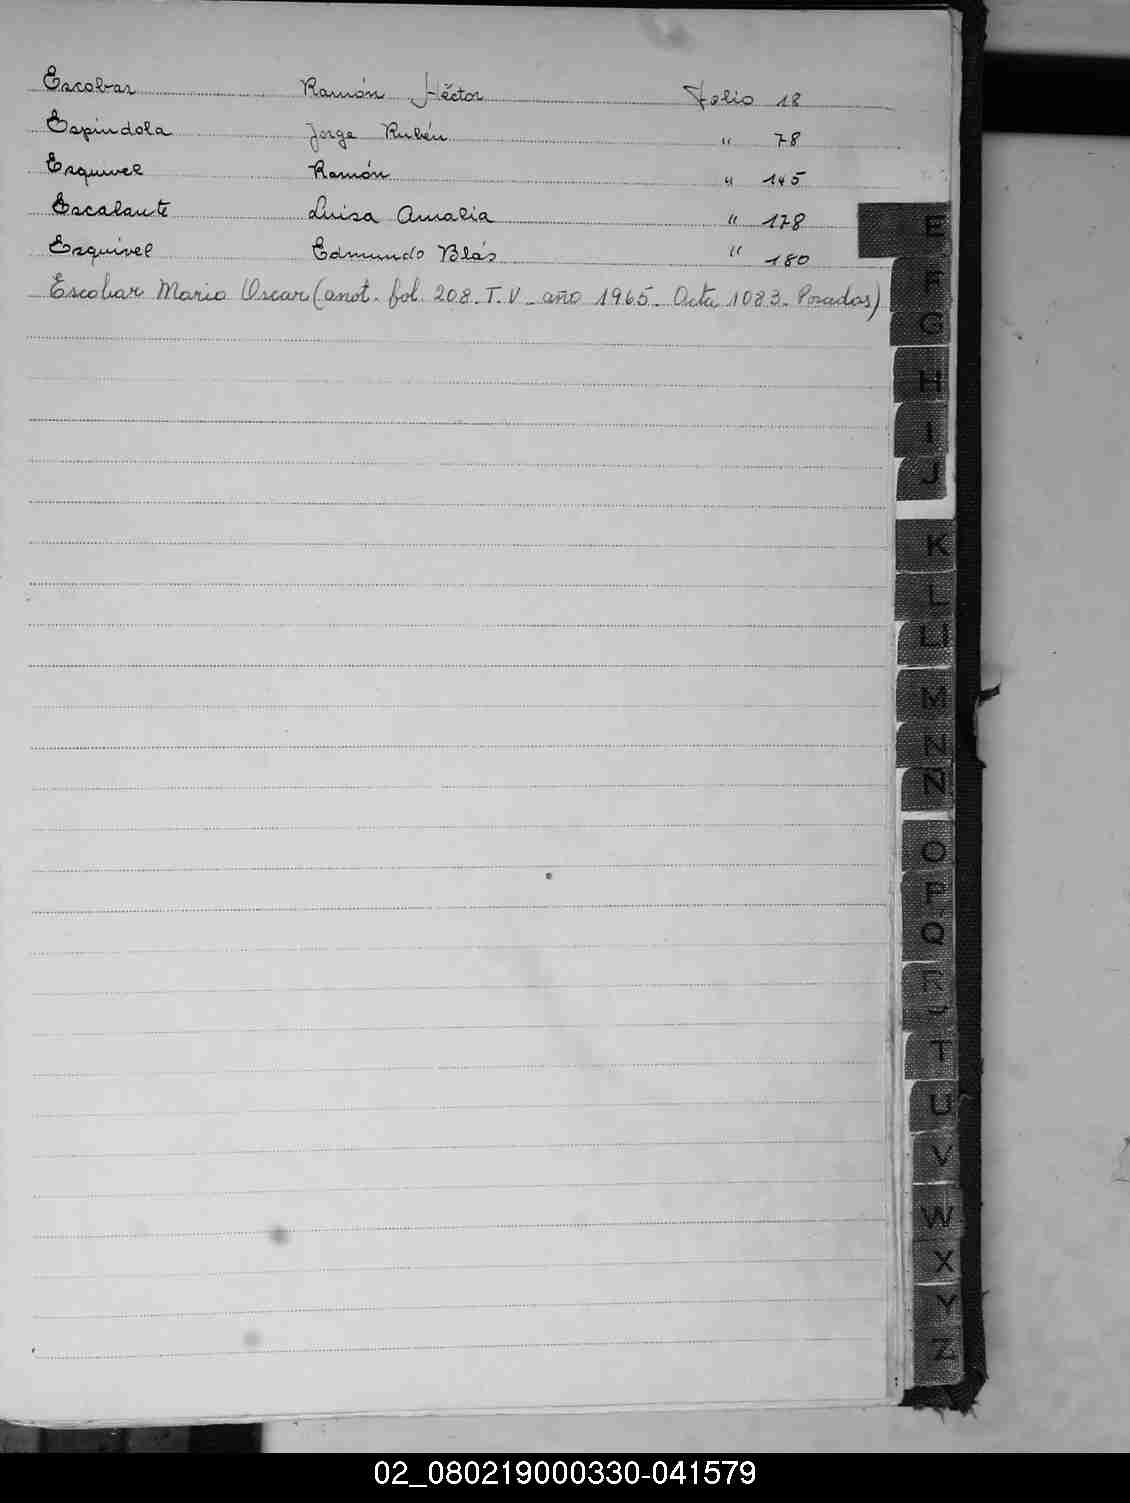 Escobar Ramón Héctor Folio 18
Espindola Jorge Rubén " 78
Esquivel Ramón " 145
Escalante Luisa Amalia " 178
Esquivel Edmundo Blás " 180
Escobar Mario Oscar (anot. fol. 208. T. V_ año 1965_ Acta 1083_ Posadas)
E
F
G
H
I
J
K
L
LL
M
N
Ñ
O
P
Q
R
T
U
V
W
X
Y
Z
02_080219000330-041579